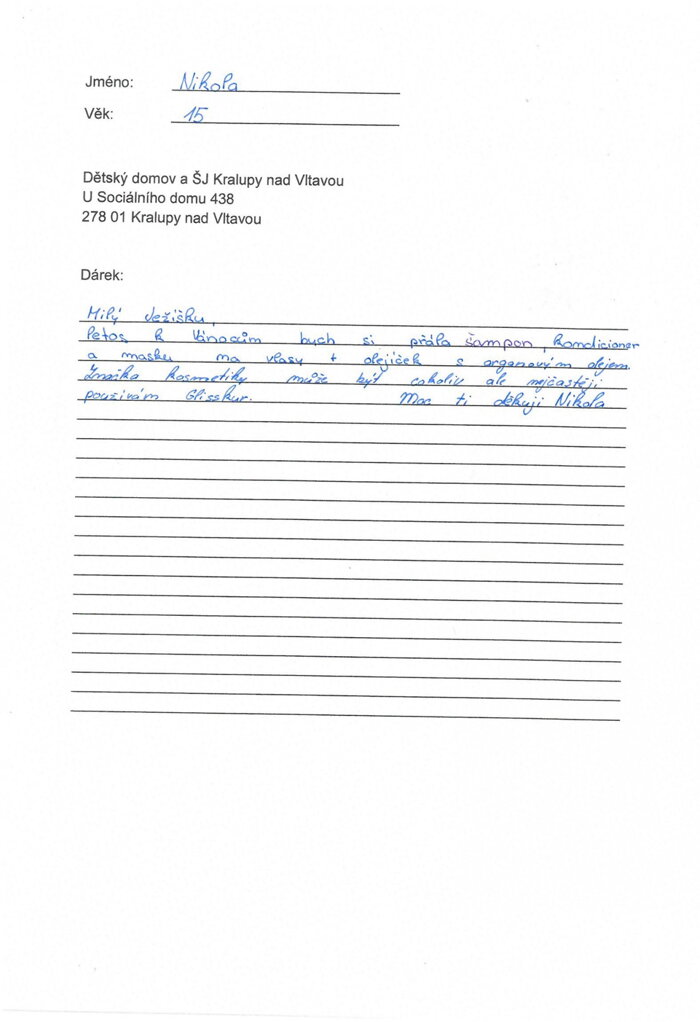 Jméno: Nikola
Věk: 15
Dětský domov a ŠJ Kralupy nad Vltavou
U Sociálního domu 438
278 01 Kralupy nad Vltavou
Dárek:
Milý Ježíšku,
letos k Vánocům bych si přála šampon, kondicioner
a masku na vlasy + olejíček s organovým olejem.
Značka kosmetiky může být cokoliv ale nejčastěji
používám Glisskur. Moc ti děkuji Nikola